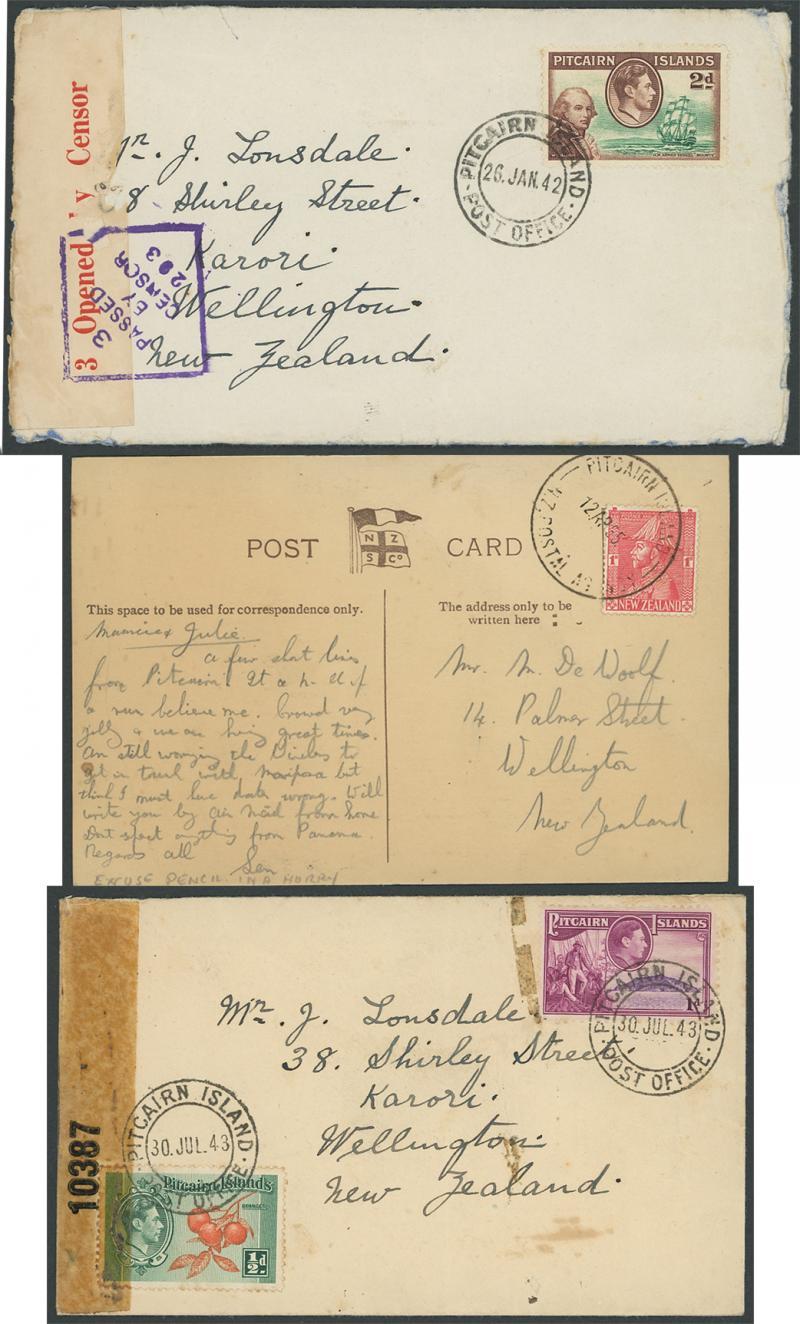 PITCAIRN ISLANDS
2d
H.M. ARMED VESSEL "BOUNTY"
PITCAIRN ISLAND
26. JAN. 42
POST OFFICE
3 Opened by Censor
3
PASSED
BY
CENSOR
293
Mr. J. Lonsdale.
38 Shirley Street.
Karori.
Wellington.
New Zealand.
PITCAIRN ISLAND
12 AP 35
N.Z. POSTAL AGENCY
POST CARD
N Z
S Co
1D 1D
NEW ZEALAND
This space to be used for correspondence only.
The address only to be
written here
Maurice & Julie.
a few short lines
from Pitcairn. It a h. U of
a run believe me. Crowd very
jolly & we are having great times.
Am still worrying the Wireless to
get in touch with Mariposa but
think I must have dates wrong. Will
write you by air mail from home
Dont expect anything from Panama.
Regards all
EXCUSE PENCIL. IN A HURRY
Mr. M. De Woolf.
14. Palmer Street.
Wellington
New Zealand.
PITCAIRN ISLANDS
1d
PITCAIRN ISLAND
30 JUL. 43
POST OFFICE
Mr. J. Lonsdale.
38. Shirley Street
Karori.
Wellington.
New Zealand.
PITCAIRN ISLAND
30 JUL. 43
POST OFFICE
10387
Pitcairn Islands
ORANGES
½d